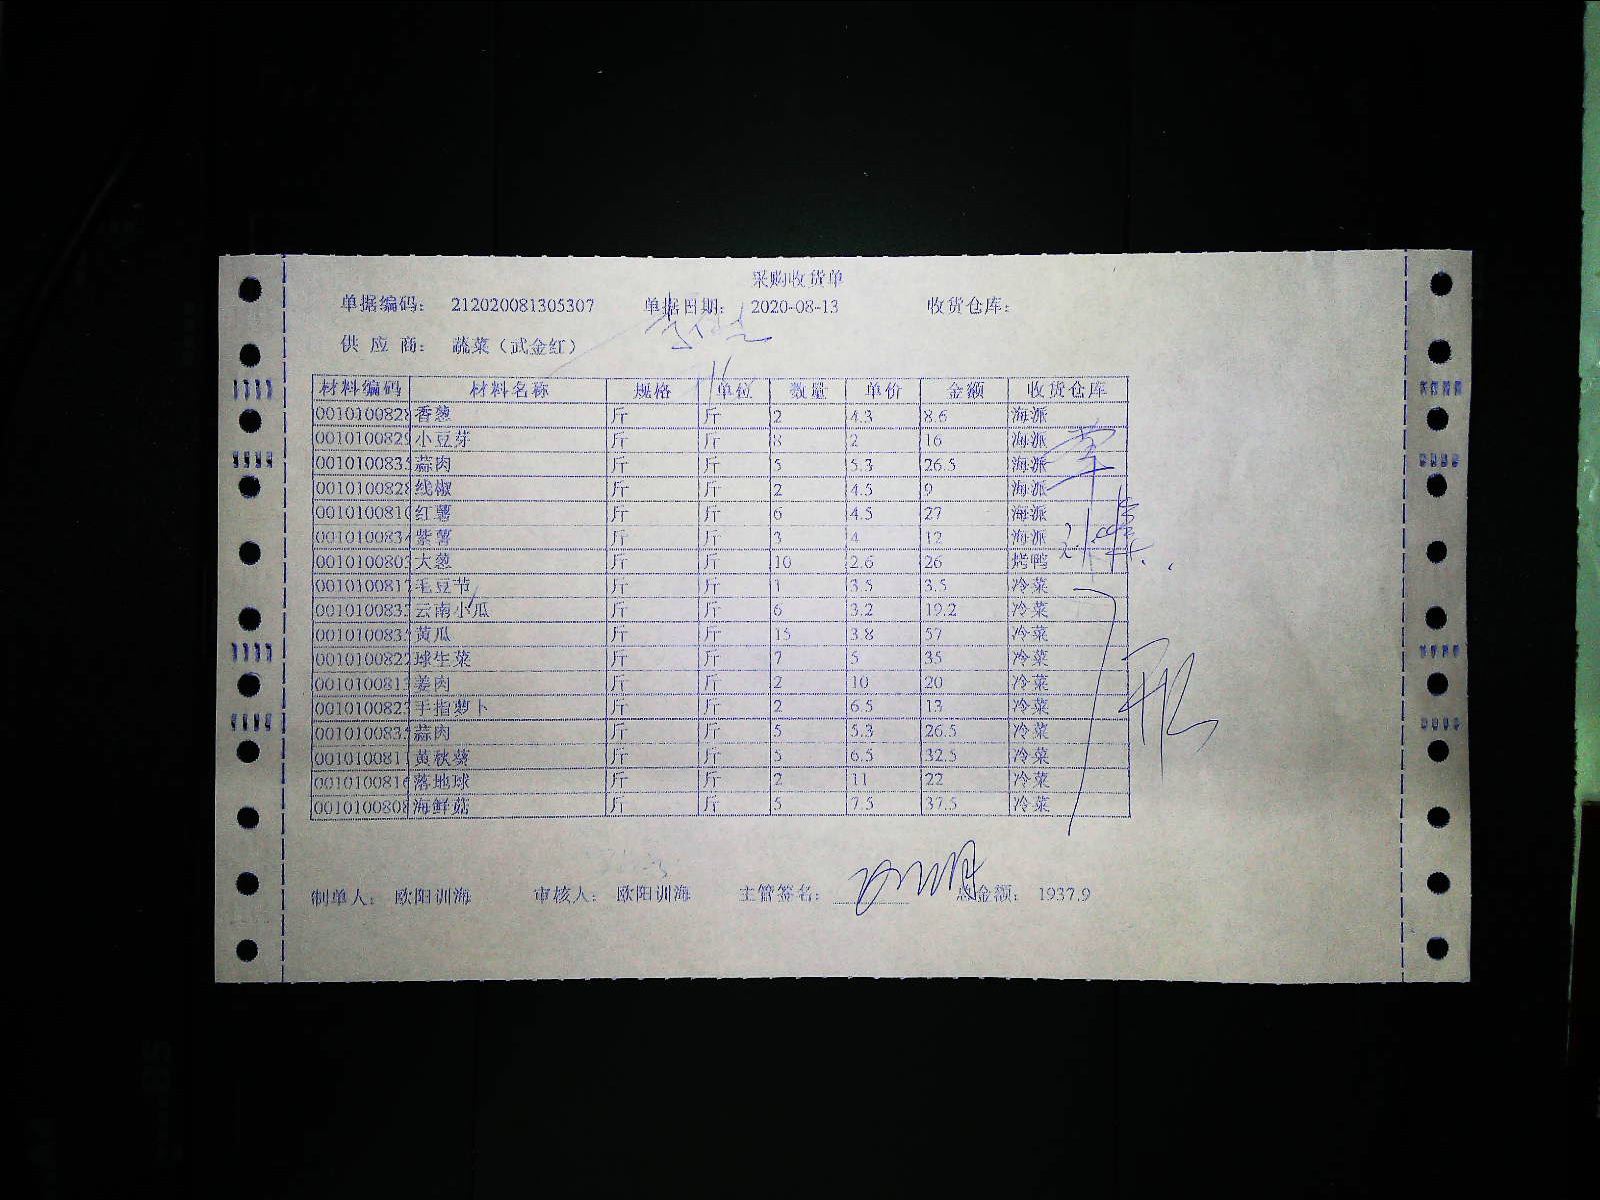 采购收货单
单据编码: 212020081305307 单据日期: 2020-08-13 收货仓库:
供 应 商: 蔬菜（武金红）
材料编码 材料名称 规格 单位 数量 单价 金额 收货仓库
0010100828 香葱 斤 斤 2 4.3 8.6 海派
0010100829 小豆芽 斤 斤 8 2 16 海派
001010083 蒜肉 斤 斤 5 5.3 26.5 海派
0010100828 线椒 斤 斤 2 4.5 9 海派
001010081 红薯 斤 斤 6 4.5 27 海派
001010083 紫薯 斤 斤 3 4 12 海派
001010080 大葱 斤 斤 10 2.6 26 烤鸭
001010081 毛豆节 斤 斤 1 3.5 3.5 冷菜
001010083 云南小瓜 斤 斤 6 3.2 19.2 冷菜
001010083 黄瓜 斤 斤 15 3.8 57 冷菜
001010082 球生菜 斤 斤 7 5 35 冷菜
001010081 姜肉 斤 斤 2 10 20 冷菜
001010082 手指萝卜 斤 斤 2 6.5 13 冷菜
001010083 蒜肉 斤 斤 5 5.3 26.5 冷菜
001010081 黄秋葵 斤 斤 5 6.5 32.5 冷菜
0010100816 落地球 斤 斤 2 11 22 冷菜
0010100808 海鲜菇 斤 斤 5 7.5 37.5 冷菜
制单人: 欧阳训海 审核人: 欧阳训海 主管签名: 总金额: 1937.9